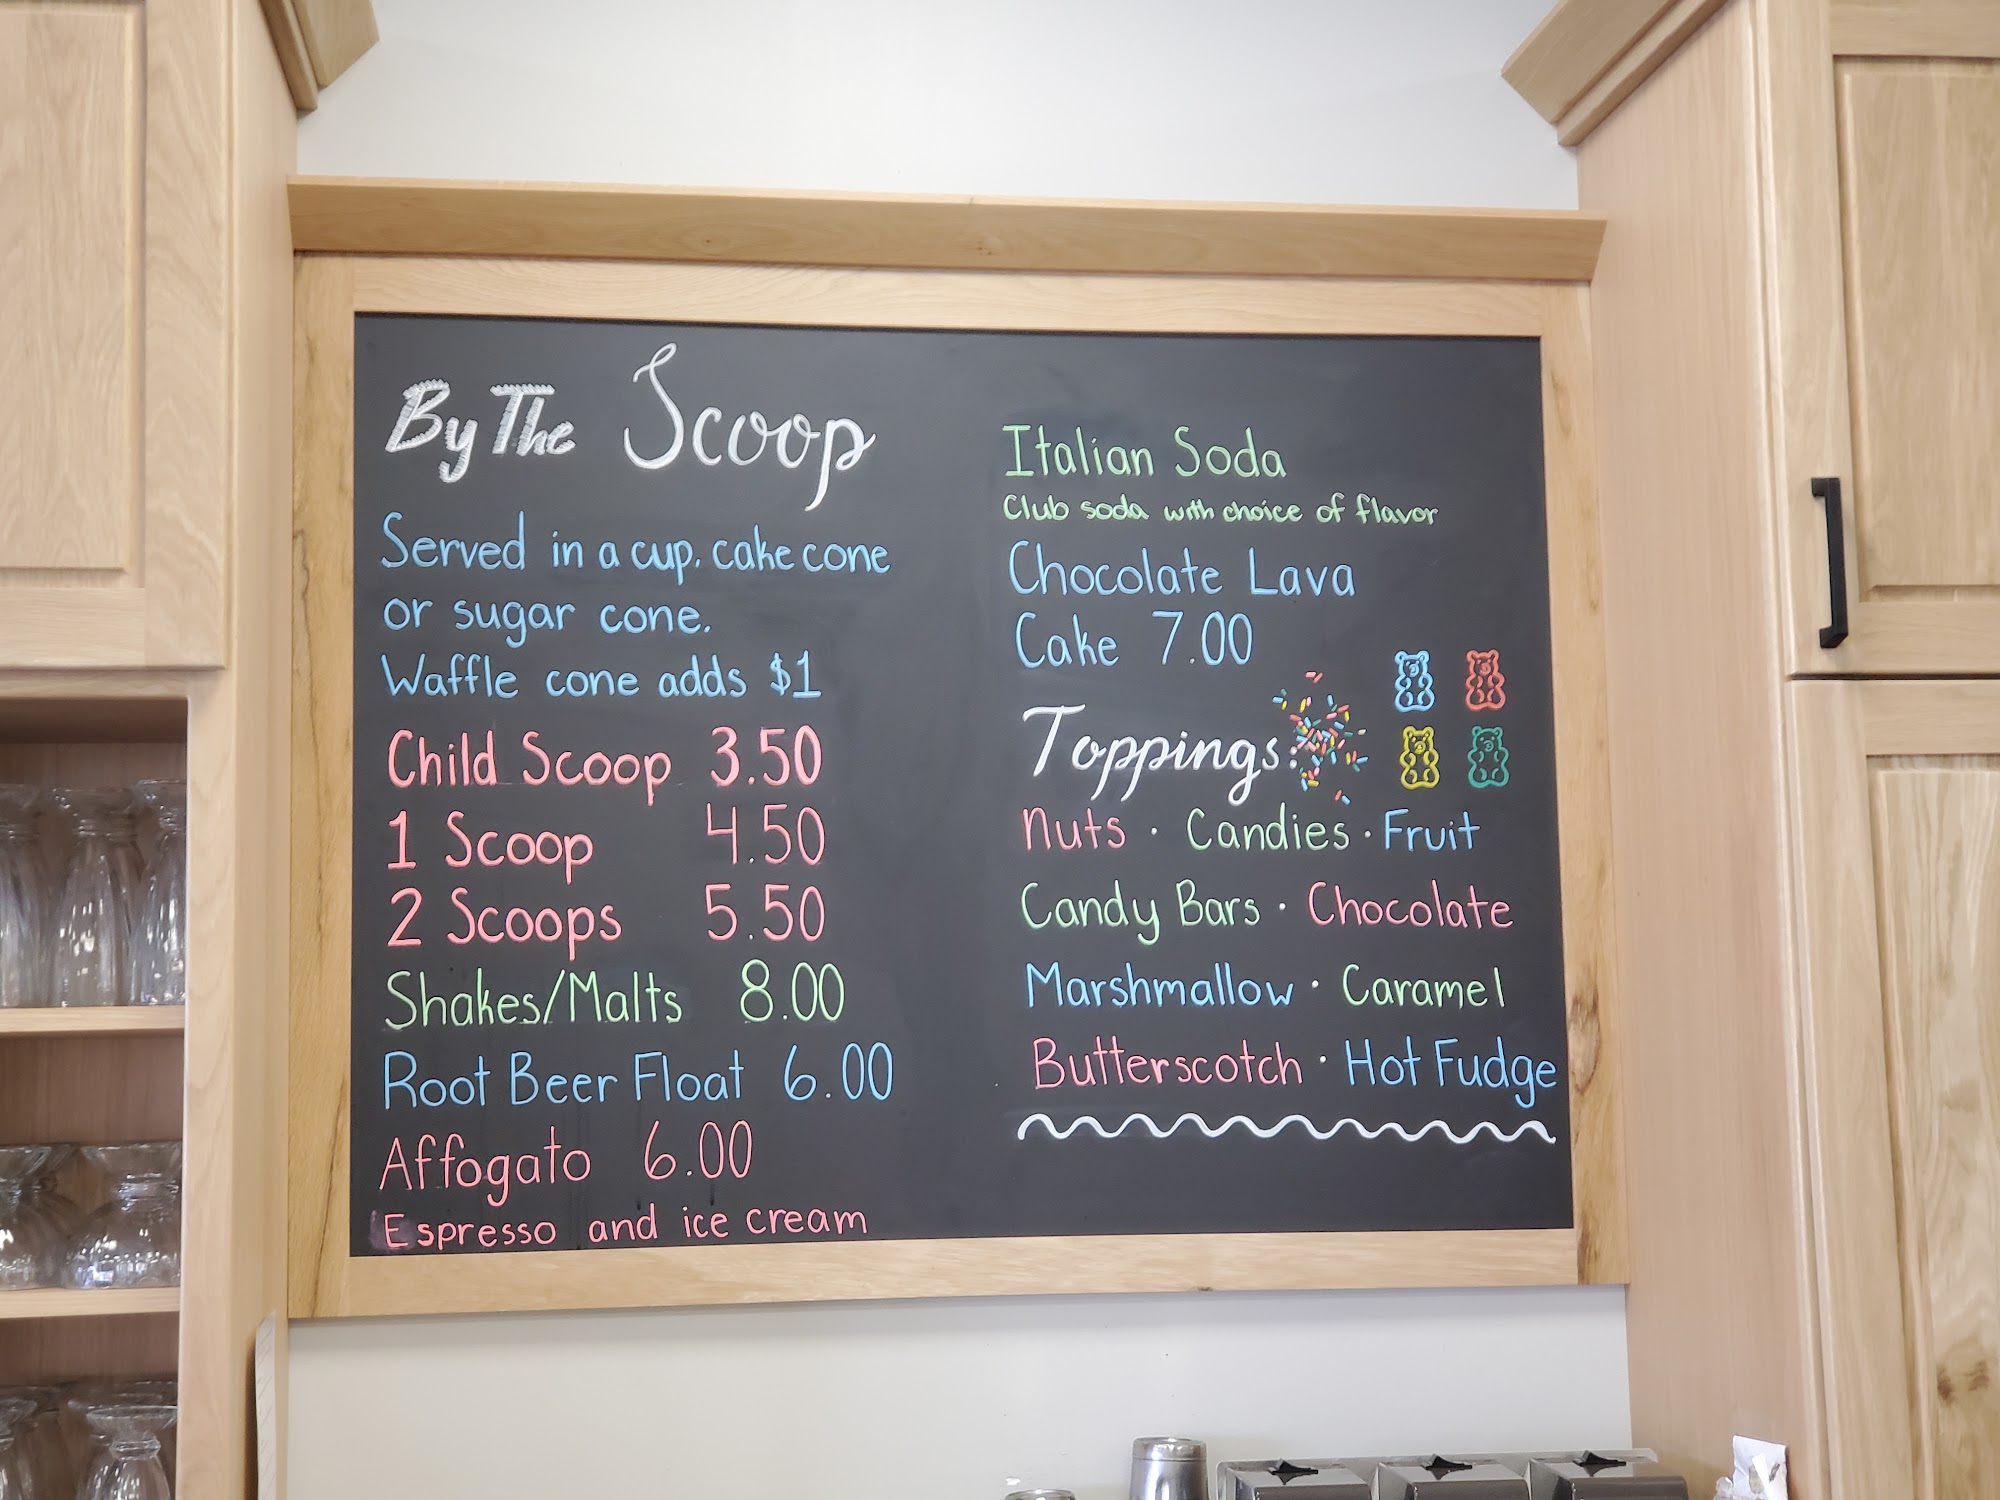 By The Scoop
Served in a cup, cake cone
or sugar cone.
Waffle cone adds $1
Child Scoop 3.50
1 Scoop 4.50
2 Scoops 5.50
Shakes/Malts 8.00
Root Beer Float 6.00
Affogato 6.00
Espresso and ice cream
Italian Soda
Club soda with choice of flavor
Chocolate Lava
Cake 7.00
Toppings:
Nuts · Candies · Fruit
Candy Bars · Chocolate
Marshmallow · Caramel
Butterscotch · Hot Fudge